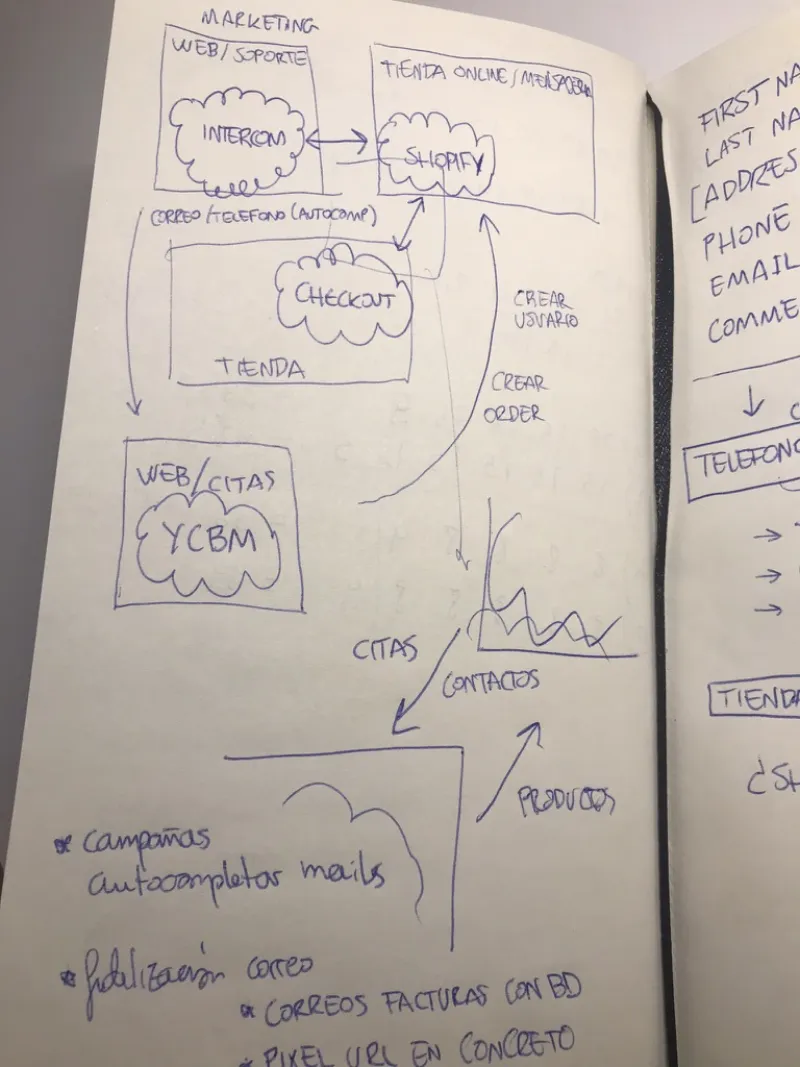 MARKETING
WEB/SOPORTE
INTERCOM
TIENDA ONLINE/MENSAJERIA
SHOPIFY
CORREO/TELEFONO (AUTOCOMP)
CHECKOUT
TIENDA
CREAR
USUARIO
CREAR
ORDER
WEB/CITAS
YCBM
CITAS
CONTACTOS
PRODUCTOS
* campañas
autocompletar mails
* fidelización correo
* CORREOS FACTURAS CON BD
* PIXEL URL EN CONCRETO
FIRST NA
LAST NA
[ADDRES
PHONE
EMAIL
COMME
TELEFONO
TIENDA
¿SH